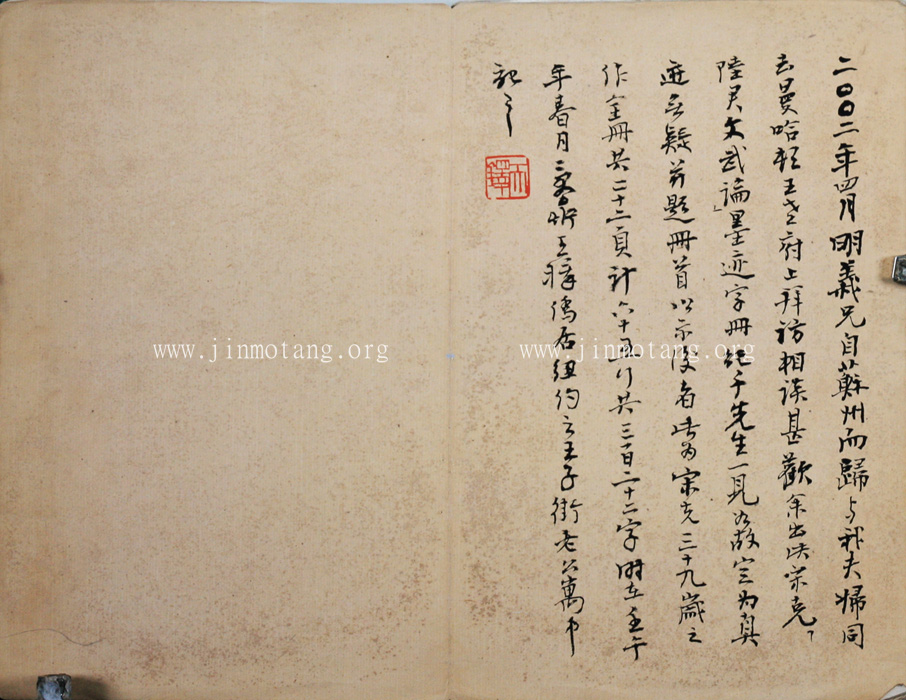 二〇〇二年四月明義兄自蘇州而歸与我夫婦同
去曼哈頓王老府上拜訪相談甚歡余出此宋克「
陸君文武論」墨迹字冊 先生一見如故定为真
迹無疑并題冊首以示後者此为宋克三十九歲之
作全冊共二十二頁計六十五行共三百二十二字时在壬午
年春月 王 僑居紐約之王子街老公寓中
記之
www.jinmotang.org
www.jinmotang.org